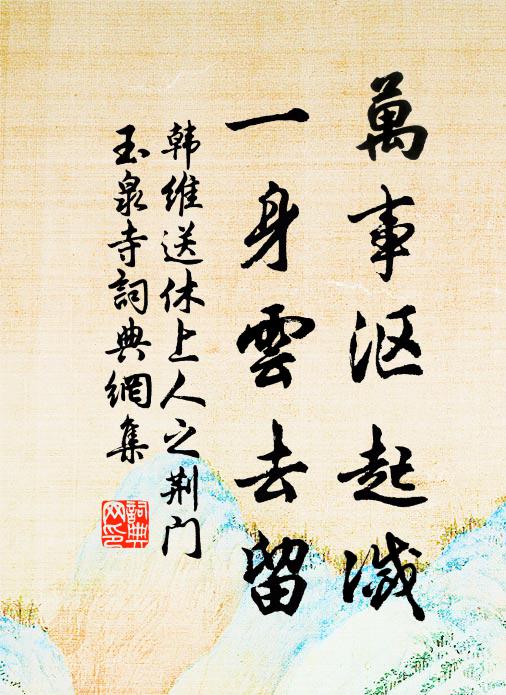 萬事沤起滅
一身雲去留
韩維送休上人之荆门
玉泉寺詞典網集
詞典
网印